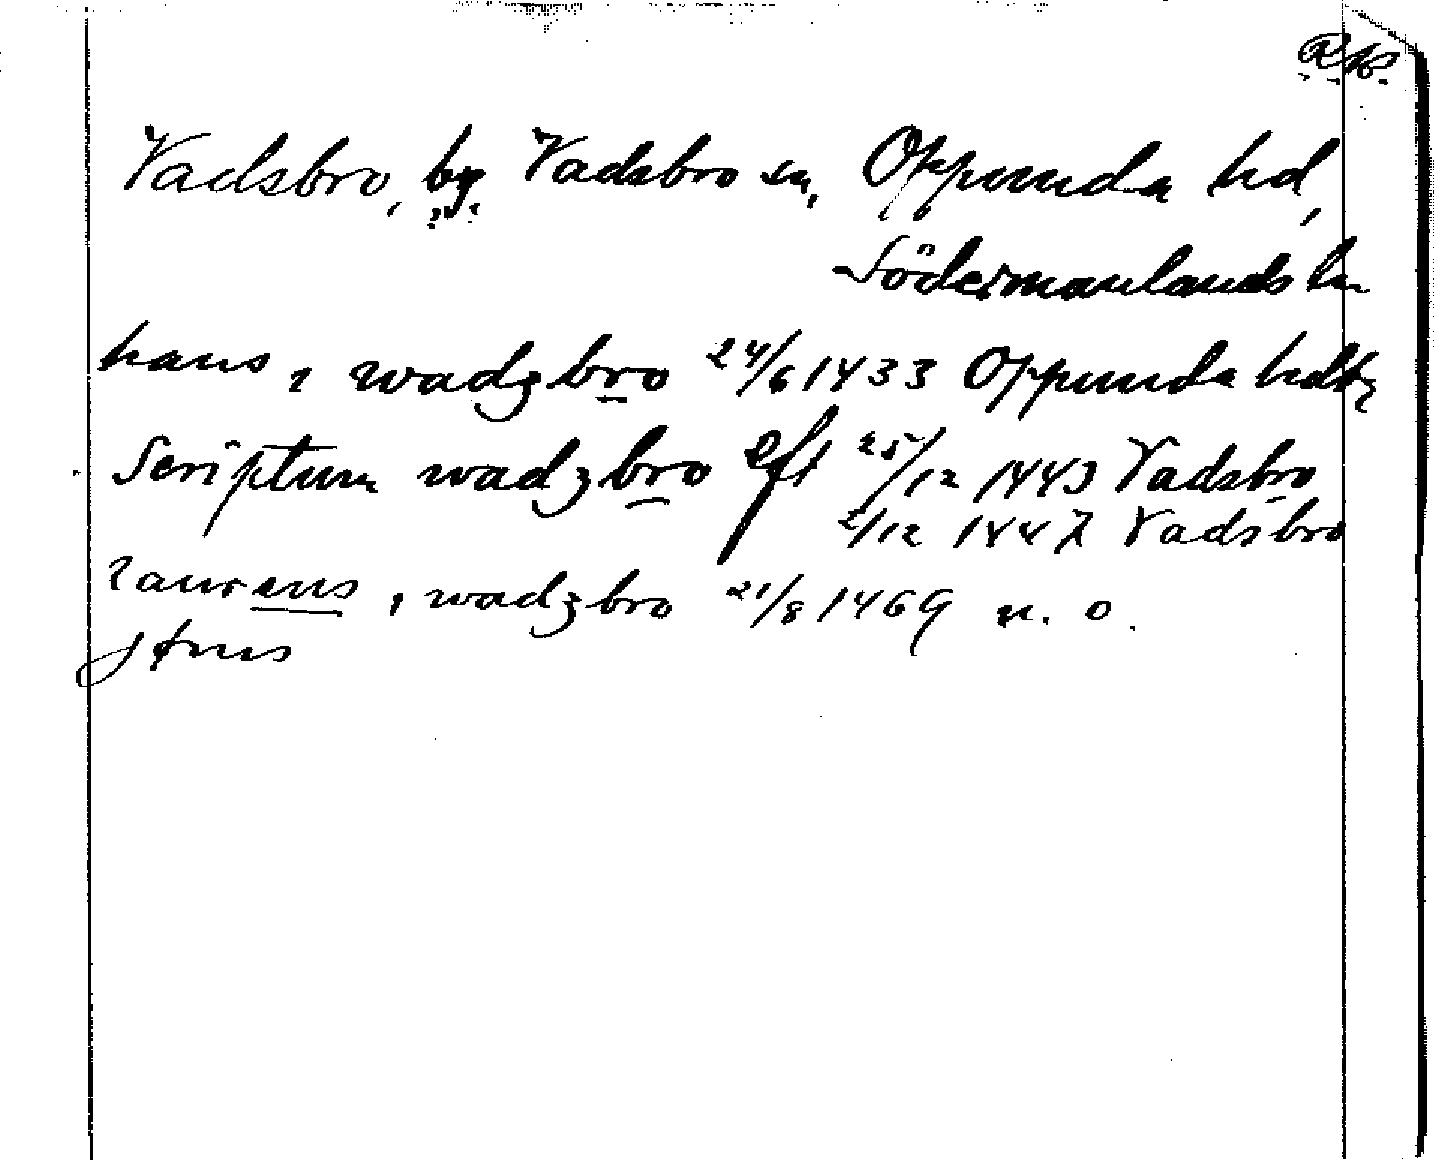 Vadsbro, by Vadsbro sn, Oppunda hd,
Södermanlands ln
hans i wadzbro 24/6 1433 Oppunda hdtg
Scriptum wadzbro Aft 25/12 1443 Vadsbro
2/12 1447 Vadsbro
laurens i wadzbro 21/8 1469 n. o.